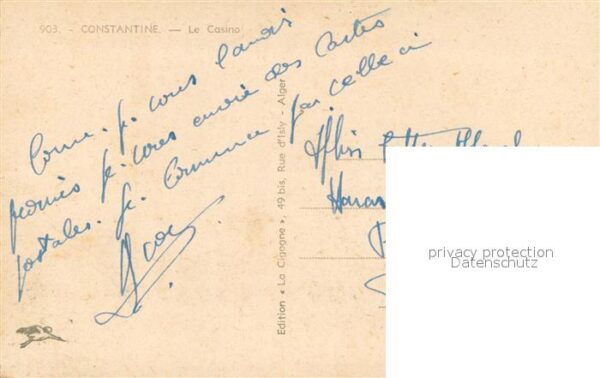 903. - CONSTANTINE. — Le Casino
Come je vous l'avais
promis je vous envoie des cartes
postales. Je commence par celle ci
Edition « La Cigogne », 49 bis, Rue d'Isly - Alger
privacy protection
Datenschutz